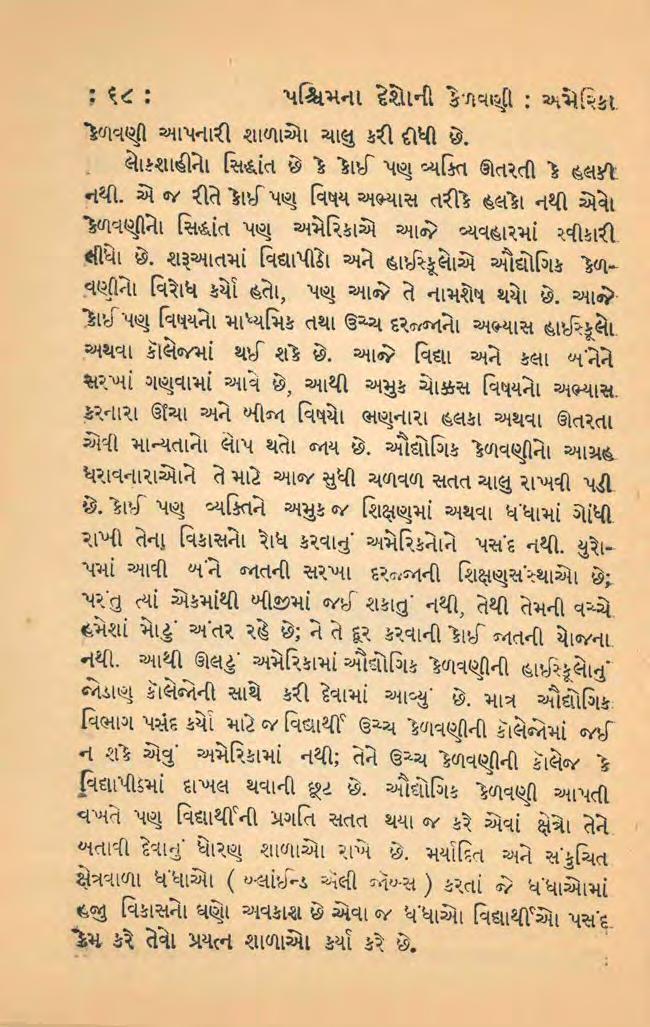 : ૬૮ : પશ્ચિમના દેશોની કેળવણી : અમેરિકા
કેળવણી આપનારી શાળાઓ ચાલુ કરી દીધી છે.
લોકશાહીનો સિદ્ધાંત છે કે કોઈ પણ વ્યક્તિ ઊતરતી કે હલકી
નથી. એ જ રીતે કોઈ પણ વિષય અભ્યાસ તરીકે હલકો નથી એવો
કેળવણીનો સિદ્ધાંત પણ અમેરિકાએ આજે વ્યવહારમાં સ્વીકારી
લીધો છે. શરૂઆતમાં વિદ્યાપીઠો અને હાઈસ્કૂલોએ ઔદ્યોગિક કેળ-
વણીનો વિરોધ કર્યો હતો, પણ આજે તે નામશેષ થયો છે. આજે
કોઈ પણ વિષયનો માધ્યમિક તથા ઉચ્ચ દરજ્જાનો અભ્યાસ હાઈસ્કૂલો
અથવા કૉલેજમાં થઈ શકે છે. આજે વિદ્યા અને કલા બંનેને
સરખાં ગણવામાં આવે છે, આથી અમુક ચોક્કસ વિષયનો અભ્યાસ
કરનારા ઊંચા અને બીજા વિષયો ભણનારા હલકા અથવા ઊતરતા
એવી માન્યતાનો લોપ થતો જાય છે. ઔદ્યોગિક કેળવણીનો આગ્રહ
ધરાવનારાઓને તે માટે આજ સુધી ચળવળ સતત ચાલુ રાખવી પડી
છે. કોઈ પણ વ્યક્તિને અમુક જ શિક્ષણમાં અથવા ધંધામાં ગોંધી
રાખી તેના વિકાસનો રોધ કરવાનું અમેરિકનોને પસંદ નથી. યુરો-
પમાં આવી બંને જાતની સરખા દરજ્જાની શિક્ષણસંસ્થાઓ છે;
પરંતુ ત્યાં એકમાંથી બીજીમાં જઈ શકાતું નથી, તેથી તેમની વચ્ચે
હમેશાં મોટું અંતર રહે છે; ને તે દૂર કરવાની કોઈ જાતની યોજના
નથી. આથી ઊલટું અમેરિકામાં ઔદ્યોગિક કેળવણીની હાઈસ્કૂલોનું
જોડાણ કૉલેજોની સાથે કરી દેવામાં આવ્યું છે. માત્ર ઔદ્યોગિક
વિભાગ પસંદ કર્યો માટે જ વિદ્યાર્થી ઉચ્ચ કેળવણીની કૉલેજોમાં જઈ
ન શકે એવું અમેરિકામાં નથી; તેને ઉચ્ચ કેળવણીની કૉલેજ કે
વિદ્યાપીઠમાં દાખલ થવાની છૂટ છે. ઔદ્યોગિક કેળવણી આપતી
વખતે પણ વિદ્યાર્થીની પ્રગતિ સતત થયા જ કરે એવાં ક્ષેત્રો તેને
બતાવી દેવાનું ધોરણ શાળાઓ રાખે છે. મર્યાદિત અને સંકુચિત
ક્ષેત્રવાળા ધંધાઓ ( બ્લાંઈન્ડ ઍલી જૉબ્સ ) કરતાં જે ધંધાઓમાં
હજુ વિકાસનો ઘણો અવકાશ છે એવા જ ધંધાઓ વિદ્યાર્થીઓ પસંદ
કેમ કરે તેવો પ્રયત્ન શાળાઓ કર્યા કરે છે.